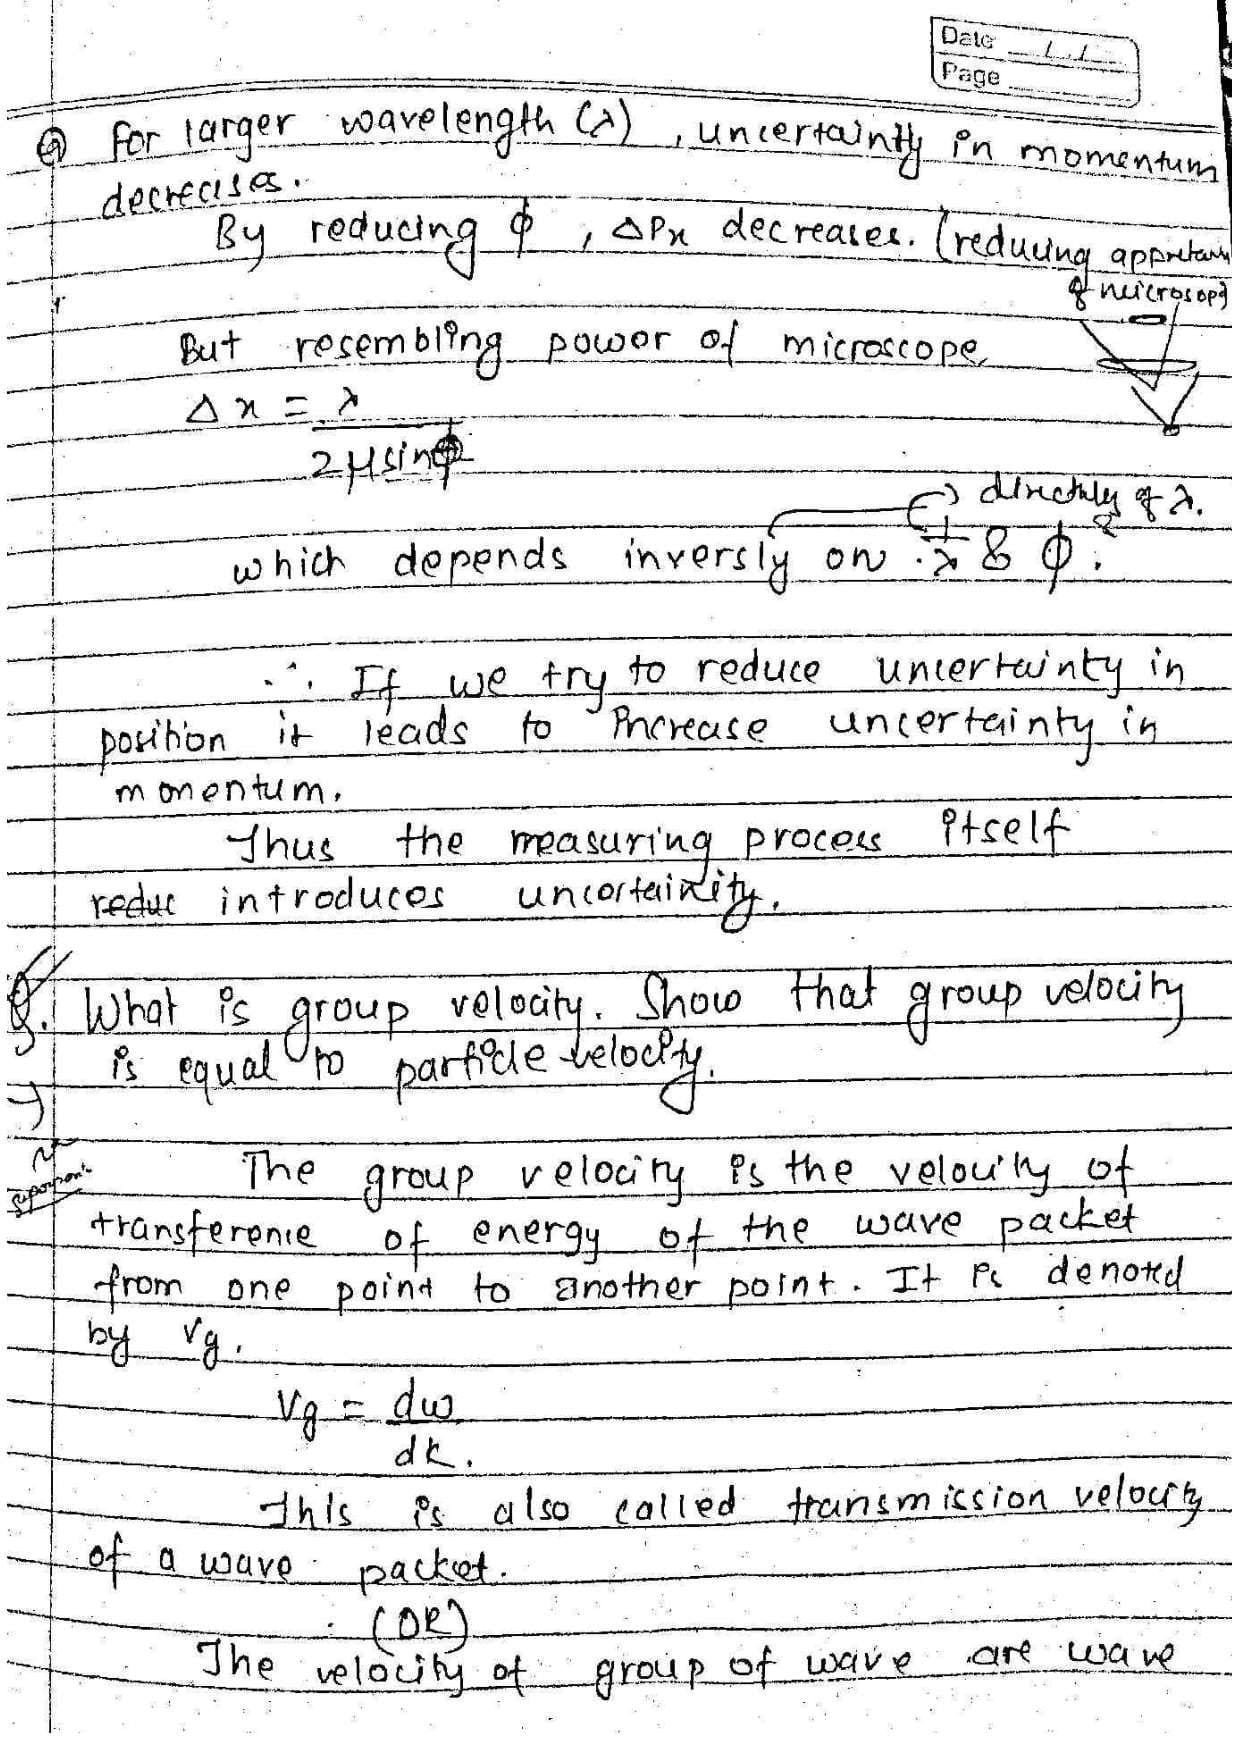 Date / /
Page
For larger wavelength (λ), uncertainty in momentum
decreases.
By reducing ϕ, ΔPx decreases. (reducing
of microscope
But resembling power of microscope
Δx = λ
2μsinϕ
directly of λ.
which depends inversly on 1/λ & ϕ.
∴ If we try to reduce uncertainty in
position it leads to increase uncertainty in
momentum.
Thus the measuring process itself
reduc introduces uncertainity.
Q. What is group velocity. Show that group velocity
is equal to particle velocity.
→
The group velocity is the velocity of
transference of energy of the wave packet
from one point to another point. It is denoted
by Vg.
Vg = dω
dk.
This is also called transmission velocity
of a wave packet.
(OR)
The velocity of group of wave are wave